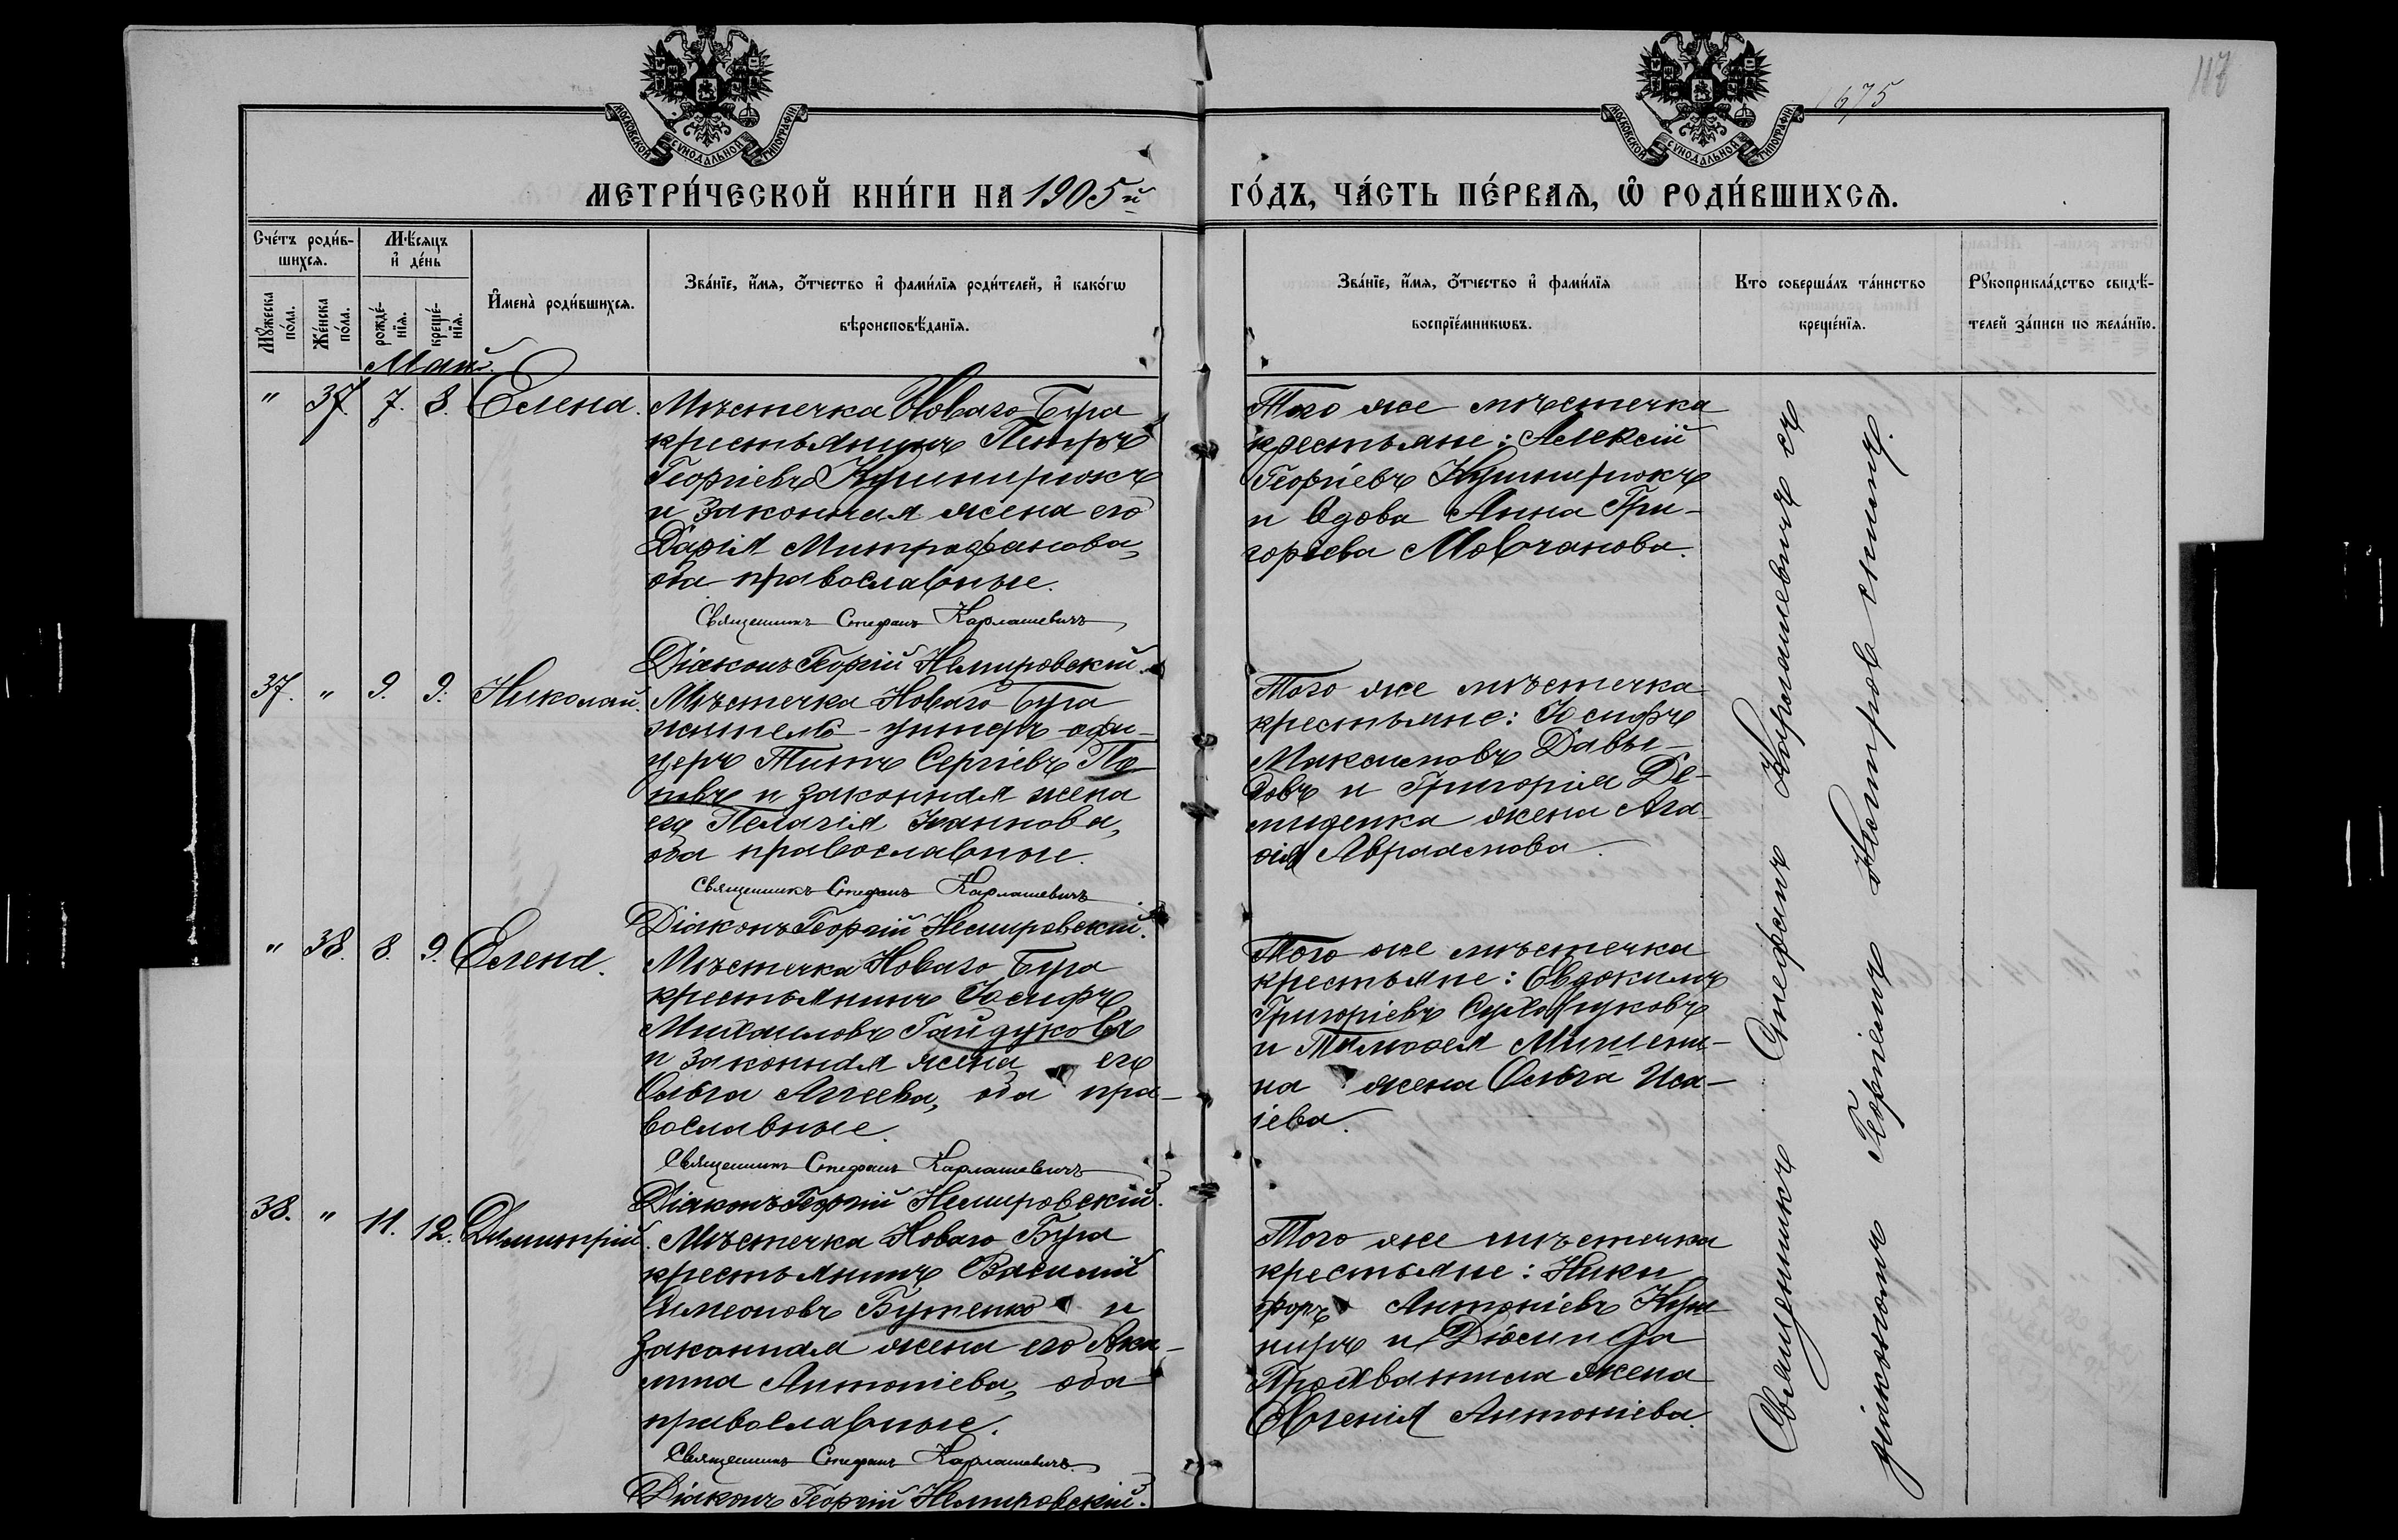 117
1675
МОСКОВСКОЙ СѴНОДАЛЬНОЙ ТИПОГРАФІИ
МОСКОВСКОЙ СѴНОДАЛЬНОЙ ТИПОГРАФІИ
МЕТРИ́ЧЕСКОЙ КНИ́ГИ НА 1905й ГО́ДЪ, ЧА́СТЬ ПЕ́РВАѦ, Ѡ҆ РОДИ́ВШИХСѦ.
Сче́тъ роди́в-
шихсѧ.
Мꙋ́жеска по́ла.
Же́нска по́ла.
Мѣ́сяцъ
и҆ де́нь
рожде́-
нїѧ.
креще́-
нїѧ.
И҆мена̀ роди́вшихсѧ.
Зва́нїе, и҆́мѧ, ѻ҆́тчество и҆ фами́лїѧ роди́телей, и҆ како́гѡ
вѣроисповѣ́данїѧ.
Зва́нїе, и҆́мѧ, ѻ҆́тчество и҆ фами́лїѧ
воспрїе́мникѡвъ.
Кто соверша́лъ та́инство
креще́нїѧ.
Рꙋкоприкла́дство свидѣ́-
телей за́писи по жела́нїю.
Май.
" 37. 7. 8. Елена.
Мѣстечка Новаго Буга
крестьянинъ Петръ
Георгіевъ Кушнирюкъ
и законная жена его
Дарія Митрофанова,
оба православные.
Священникъ Стефанъ Карлашевичъ
Діаконъ Георгій Немировскій.
Того же мѣстечка
крестьяне: Алексій
Георгіевъ Кушнирюкъ
и вдова Анна Гри-
горіева Мовчанова.
37. " 9. 9. Николай.
Мѣстечка Новаго Буга
житель - унтеръ-офи-
церъ Титъ Сергіевъ По-
повъ и законная жена
его Пелагія Іоаннова,
оба православные.
Священникъ Стефанъ Карлашевичъ
Діаконъ Георгій Немировскій.
Того же мѣстечка
крестьяне: Іосифъ
Максимовъ Давы-
довъ и Григорія Де-
миденка жена Ага-
ѳія Авраамова.
" 38. 8. 9. Елена.
Мѣстечка Новаго Буга
крестьянинъ Іосифъ
Михаиловъ Гайдуковъ
и законная жена его
Ольга Аггеева, оба пра-
вославные.
Священникъ Стефанъ Карлашевичъ
Діаконъ Георгій Немировскій.
Того же мѣстечка
крестьяне: Евдокимъ
Григоріевъ
и Тимоѳея Мишени-
на жена Ольга Иса-
іева.
38. " 11. 12. Димитрій.
Мѣстечка Новаго Буга
крестьянинъ Василій
Симеоновъ Бутенко и
законная жена его Аки-
лина Антоніева, оба
православные.
Священникъ Стефанъ Карлашевичъ
Діаконъ Георгій Немировскій.
Того же мѣстечка
крестьяне: Ники
форъ Антоніевъ Куш
ниръ и Діомида
жена
Евгенія Антоніева.
Священникъ Стефанъ Карлашевичъ съ
діакономъ Георгіемъ